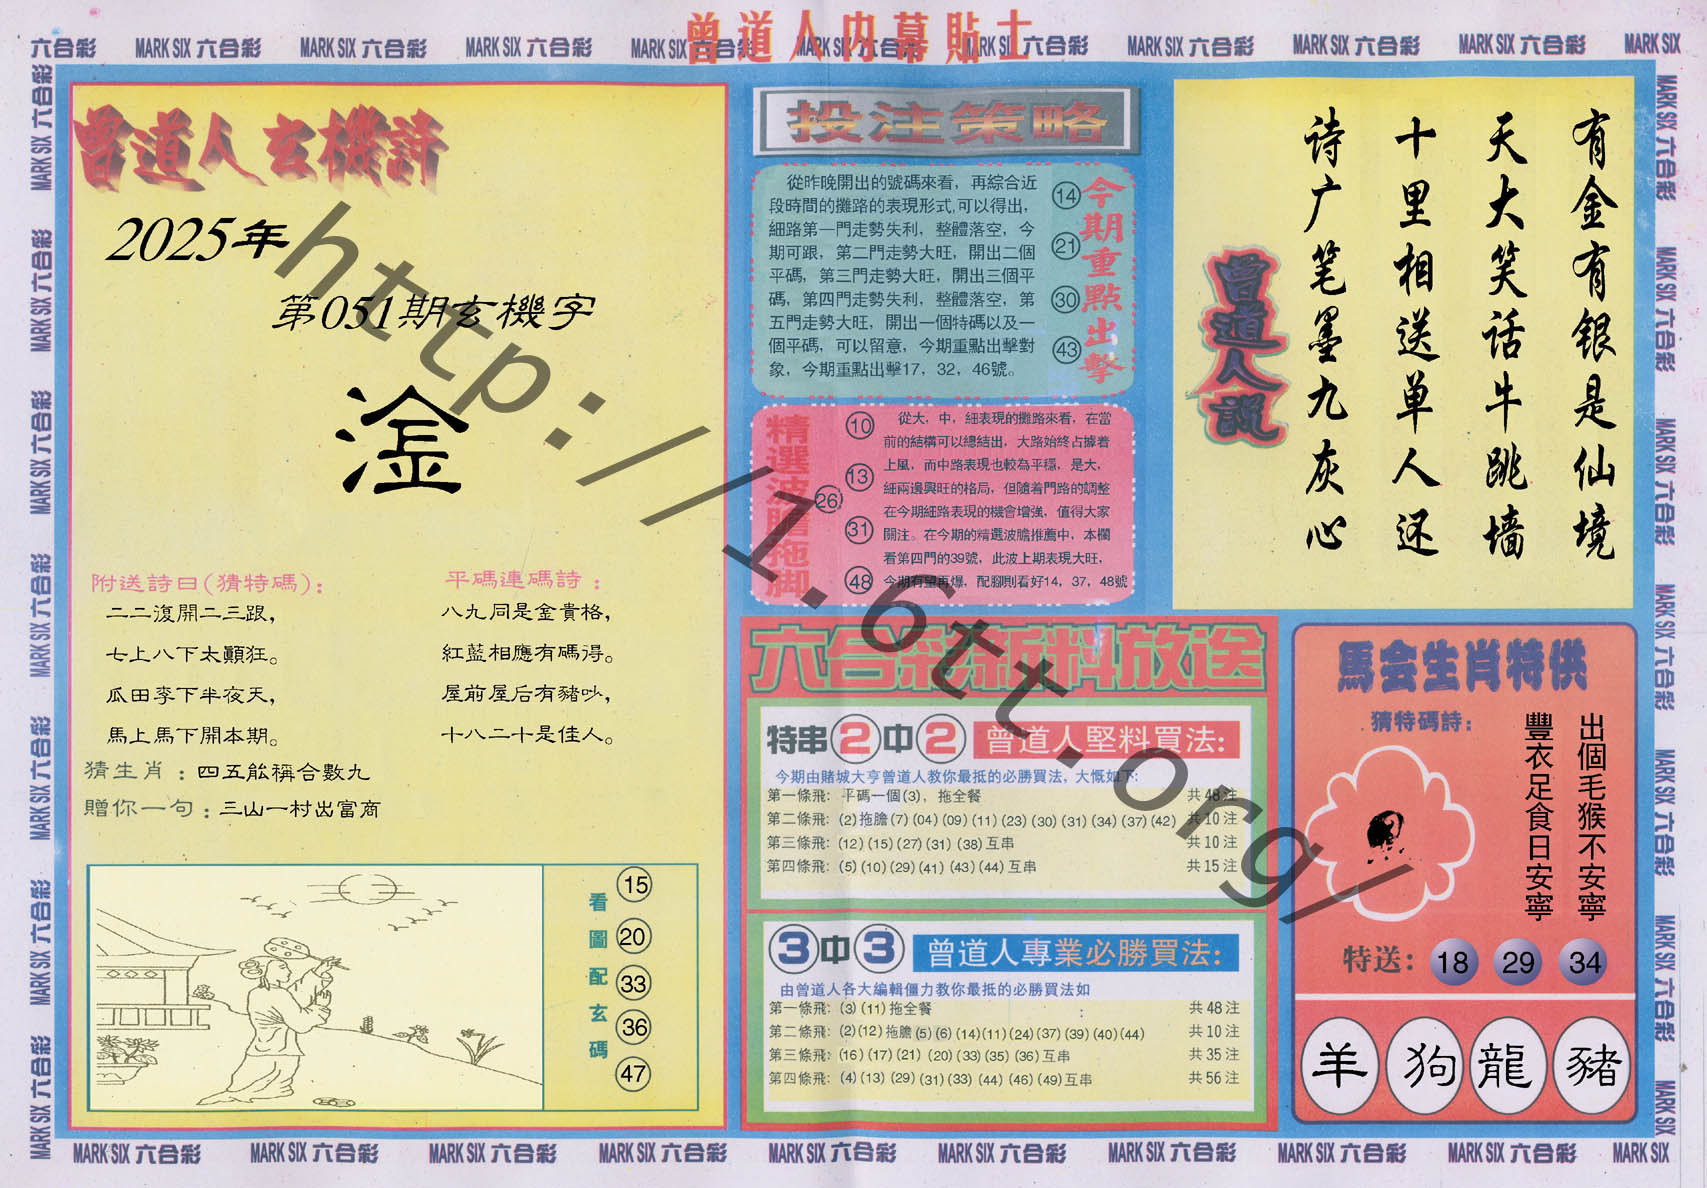 曾道人内幕貼士
六合彩 MARK SIX 六合彩 MARK SIX 六合彩 MARK SIX 六合彩 MARK SIX 六合彩 MARK SIX 六合彩 MARK SIX 六合彩 MARK SIX 六合彩 MARK SIX 六合彩 MARK SIX 六合彩 MARK SIX
曾道人玄機詩
2025年
第051期玄機字
淦
附送詩曰(猜特碼):
二二復開二三跟,
七上八下太顛狂。
瓜田李下半夜天,
馬上馬下開本期。
平碼連碼詩:
八九同是金貴格,
紅藍相應有碼得。
屋前屋后有豬吵,
十八二十是佳人。
猜生肖:四五舩稱合數九
贈你一句:三山一村出富商
看圖配玄碼
15
20
33
36
47
投注策略
從昨晚開出的號碼來看，再綜合近
段時間的攤路的表現形式,可以得出,
細路第一門走勢失利，整體落空，今
期可跟，第二門走勢大旺，開出二個
平碼，第三門走勢大旺，開出三個平
碼，第四門走勢失利，整體落空，第
五門走勢大旺，開出一個特碼以及一
個平碼，可以留意，今期重點出擊對
象，今期重點出擊17，32，46號。
14
21
30
43
今期重點出擊
精選波膽拖脚
10
13
26
31
48
從大，中，細表現的攤路來看，在當
前的結構可以總結出，大路始終占據着
上風，而中路表現也較為平穩，是大，
細兩邊興旺的格局，但隨着門路的調整
在今期細路表現的機會增強，值得大家
關注。在今期的精選波膽推薦中，本欄
看第四門的39號，此波上期表現大旺，
今期有望再爆，配腳則看好14，37，48號
六合彩新料放送
特串2中2 曾道人堅料買法:
今期由賭城大亨曾道人教你最抵的必勝買法，大慨如下:
第一條飛: 平碼一個(3)，拖全餐 共48注
第二條飛: (2)拖膽(7)(04)(09)(11)(23)(30)(31)(34)(37)(42) 共10注
第三條飛: (12)(15)(27)(31)(38)互串 共10注
第四條飛: (5)(10)(29)(41)(43)(44)互串 共15注
3中3 曾道人專業必勝買法:
由曾道人各大編輯僵力教你最抵的必勝買法如
第一條飛: (3)(11)拖全餐 : 共48注
第二條飛: (2)(12)拖膽(5)(6)(14)(11)(24)(37)(39)(40)(44) 共10注
第三條飛: (16)(17)(21)(20)(33)(35)(36)互串 共35注
第四條飛: (4)(13)(29)(31)(33)(44)(46)(49)互串 共56注
有金有银是仙境
天大笑话牛跳墙
十里相送单人还
诗广笔墨九灰心
曾道人說
馬会生肖特供
猜特碼詩:
出個毛猴不安寧
豐衣足食日安寧
特送: 18 29 34
羊 狗 龍 豬
http://1.6tt.org/
六合彩 MARK SIX 六合彩 MARK SIX 六合彩 MARK SIX 六合彩 MARK SIX 六合彩 MARK SIX 六合彩 MARK SIX 六合彩 MARK SIX
MARK SIX 六合彩 MARK SIX 六合彩 MARK SIX 六合彩 MARK SIX 六合彩 MARK SIX 六合彩 MARK SIX 六合彩 MARK SIX
MARK SIX 六合彩 MARK SIX 六合彩 MARK SIX 六合彩 MARK SIX 六合彩 MARK SIX 六合彩 MARK SIX 六合彩 MARK SIX 六合彩 MARK SIX 六合彩 MARK SIX 六合彩 MARK SIX